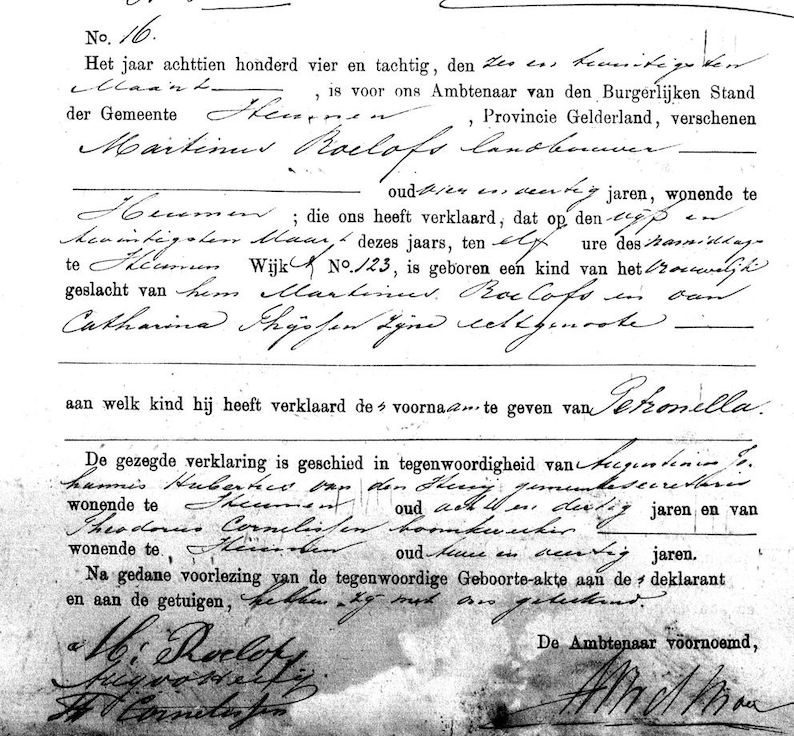 No. 16.
Het jaar achttien honderd vier en tachtig, den zes en twintigsten
Maart, is voor ons Ambtenaar van den Burgerlijken Stand
der Gemeente Heumen, Provincie Gelderland, verschenen
Martinus Roelofs landbouwer
oud vier en veertig jaren, wonende te
Heumen; die ons heeft verklaard, dat op den vijf en
twintigsten Maart dezes jaars, ten elf ure des namiddags
te Heumen Wijk No. 123, is geboren een kind van het vrouwelijk
geslacht van hem Martinus Roelofs en van
Catharina Thijssen zijne echtgenoote
aan welk kind hij heeft verklaard den voornaam te geven van Petronella.
De gezegde verklaring is geschied in tegenwoordigheid van Augustinus Jo-
hannis Hubertus van den gemeentesecretaris
wonende te Heumen oud acht en dertig jaren en van
Theodorus Cornelissen boomkweeker
wonende te Heumen oud twee en veertig jaren.
Na gedane voorlezing van de tegenwoordige Geboorte-akte aan den deklarant
en aan de getuigen, hebben zij met ons geteekend.
De Ambtenaar voornoemd,
M. Roelofs
Th Cornelissen